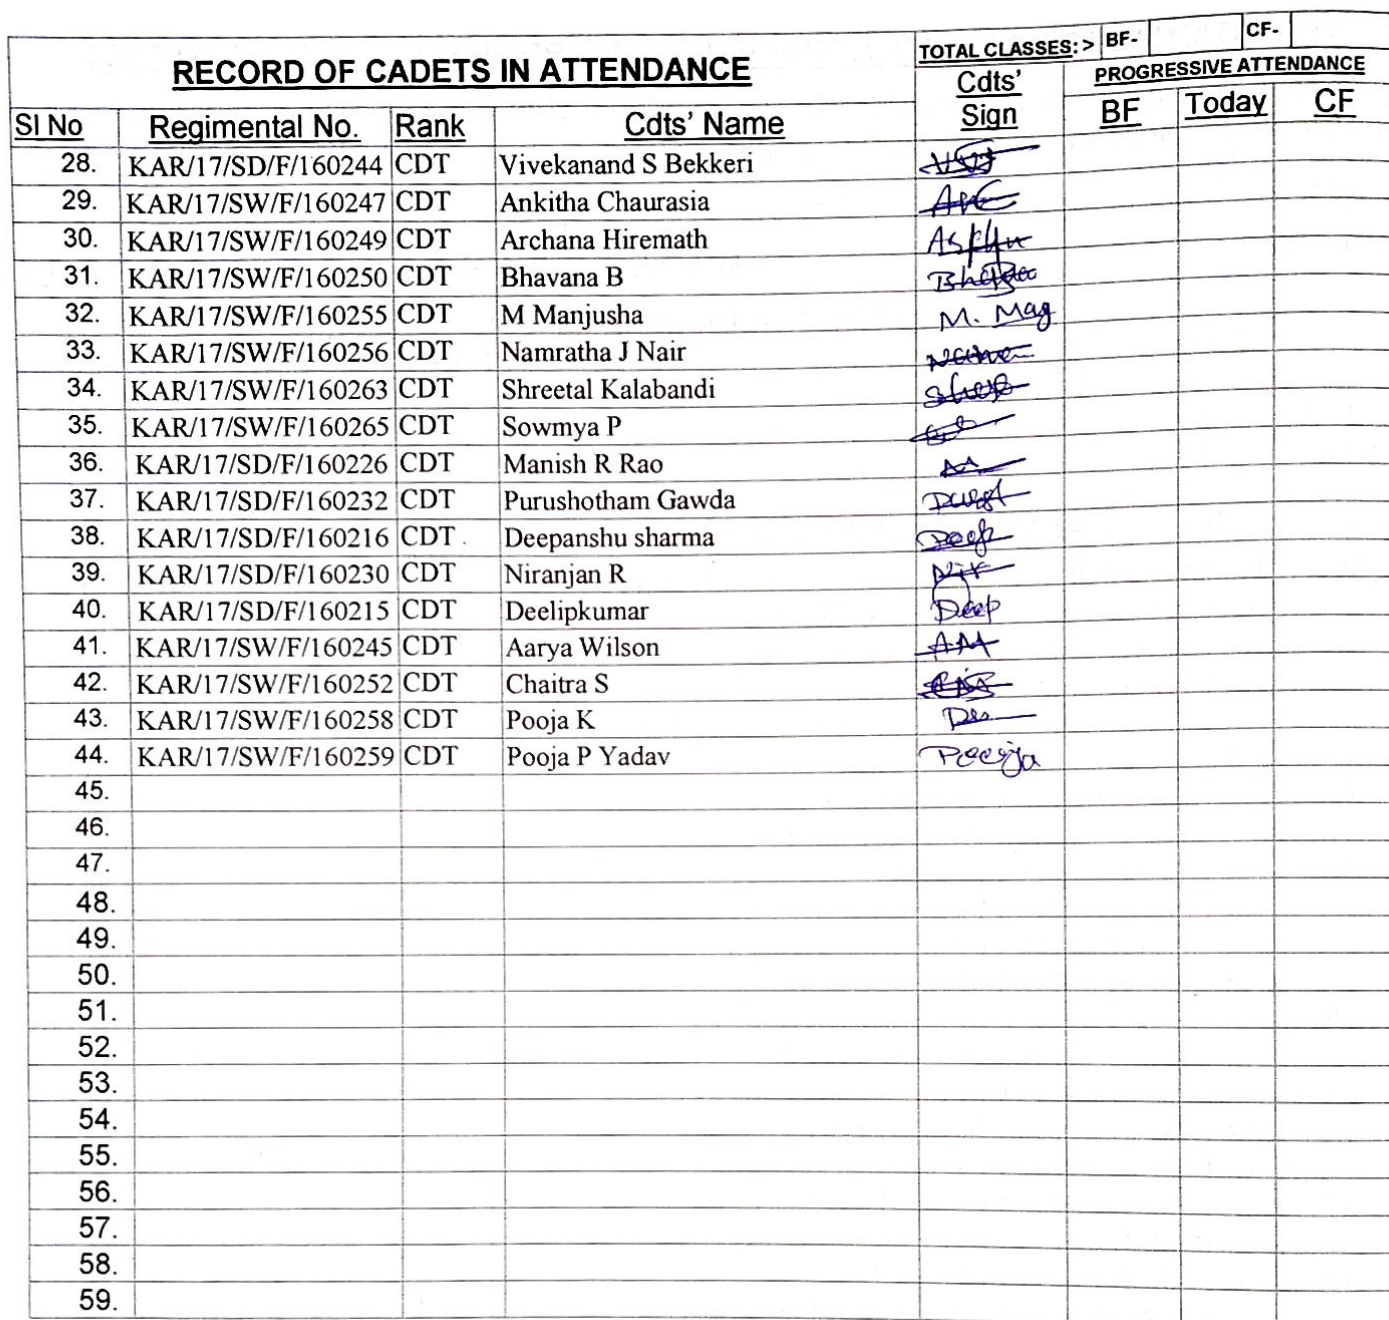 TOTAL CLASSES: > BF- CF-
RECORD OF CADETS IN ATTENDANCE Cdts' Sign PROGRESSIVE ATTENDANCE
Sl No Regimental No. Rank Cdts' Name BF Today CF
28. KAR/17/SD/F/160244 CDT Vivekanand S Bekkeri
29. KAR/17/SW/F/160247 CDT Ankitha Chaurasia
30. KAR/17/SW/F/160249 CDT Archana Hiremath
31. KAR/17/SW/F/160250 CDT Bhavana B
32. KAR/17/SW/F/160255 CDT M Manjusha M. Mag
33. KAR/17/SW/F/160256 CDT Namratha J Nair
34. KAR/17/SW/F/160263 CDT Shreetal Kalabandi
35. KAR/17/SW/F/160265 CDT Sowmya P
36. KAR/17/SD/F/160226 CDT Manish R Rao
37. KAR/17/SD/F/160232 CDT Purushotham Gawda
38. KAR/17/SD/F/160216 CDT . Deepanshu sharma
39. KAR/17/SD/F/160230 CDT Niranjan R
40. KAR/17/SD/F/160215 CDT Deelipkumar Deep
41. KAR/17/SW/F/160245 CDT Aarya Wilson
42. KAR/17/SW/F/160252 CDT Chaitra S
43. KAR/17/SW/F/160258 CDT Pooja K
44. KAR/17/SW/F/160259 CDT Pooja P Yadav Pooja
45.
46.
47.
48.
49.
50.
51.
52.
53.
54.
55.
56.
57.
58.
59.